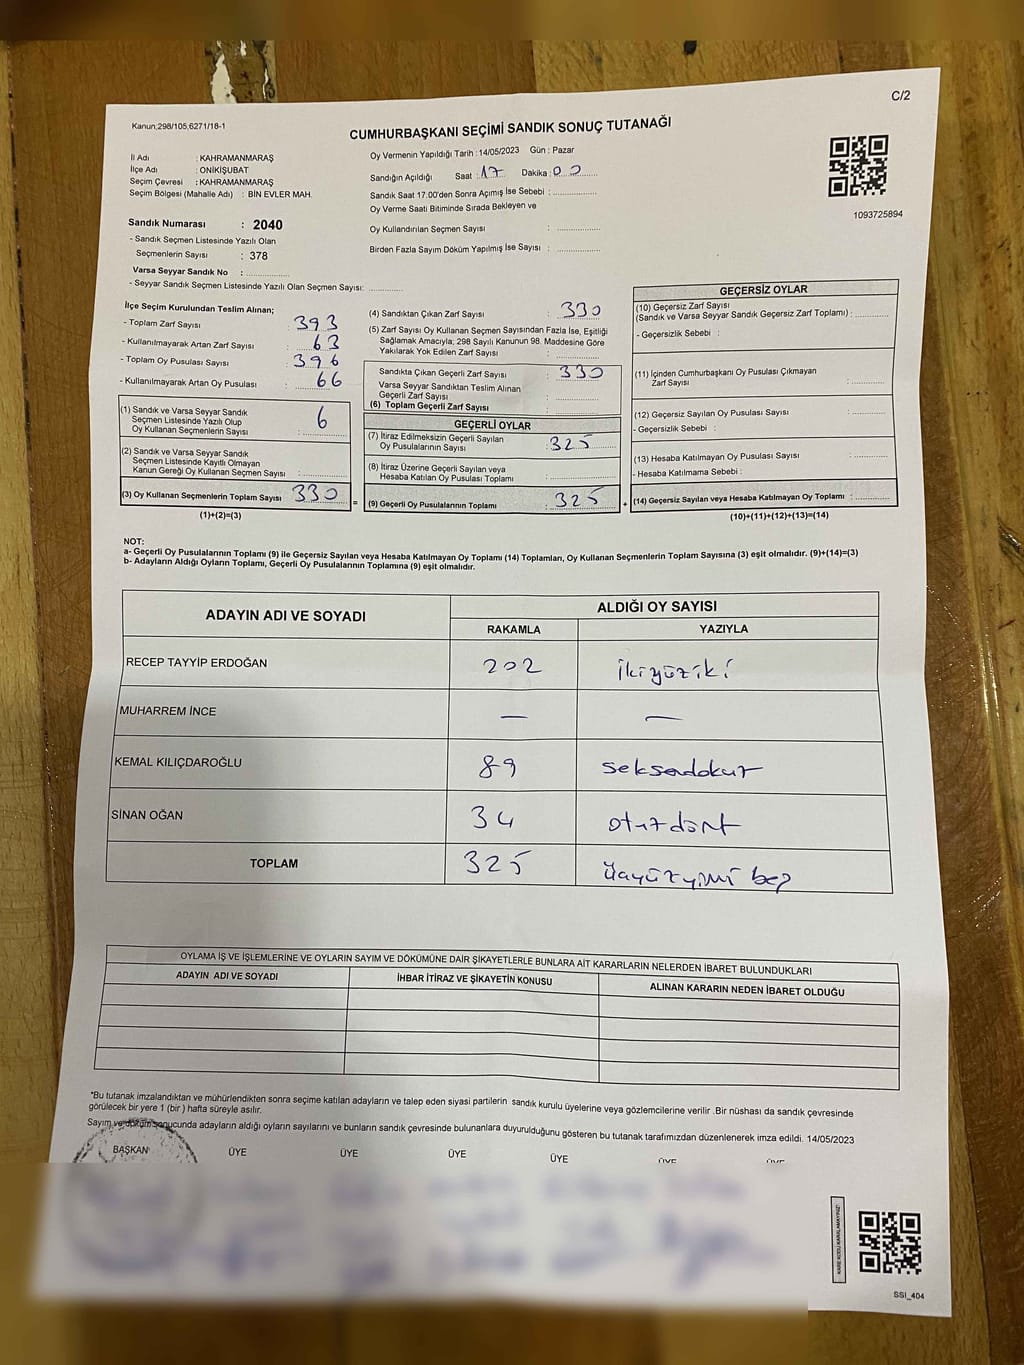 C/2
Kanun,298/105,6271/18-1
CUMHURBAŞKANI SEÇİMİ SANDIK SONUÇ TUTANAĞI
İl Adı : KAHRAMANMARAŞ
İlçe Adı : ONİKİŞUBAT
Seçim Çevresi : KAHRAMANMARAŞ
Seçim Bölgesi (Mahalle Adı) : BİN EVLER MAH.
Sandık Numarası : 2040
- Sandık Seçmen Listesinde Yazılı Olan
Seçmenlerin Sayısı : 378
Varsa Seyyar Sandık No : ............
- Seyyar Sandık Seçmen Listesinde Yazılı Olan Seçmen Sayısı: ............
Oy Vermenin Yapıldığı Tarih : 14/05/2023 Gün : Pazar
Sandığın Açıldığı Saat : 17 Dakika : 00
Sandık Saat 17.00'den Sonra Açımış İse Sebebi : ............
Oy Verme Saati Bitiminde Sırada Bekleyen ve
Oy Kullandırılan Seçmen Sayısı : ............
Birden Fazla Sayım Döküm Yapılmış İse Sayısı : ............
1093725894
İlçe Seçim Kurulundan Teslim Alınan;
- Toplam Zarf Sayısı : 393
- Kullanılmayarak Artan Zarf Sayısı : 63
- Toplam Oy Pusulası Sayısı : 396
- Kullanılmayarak Artan Oy Pusulası : 66
(1) Sandık ve Varsa Seyyar Sandık
Seçmen Listesinde Yazılı Olup
Oy Kullanan Seçmenlerin Sayısı : 6
(2) Sandık ve Varsa Seyyar Sandık
Seçmen Listesinde Kayıtlı Olmayan
Kanun Gereği Oy Kullanan Seçmen Sayısı : ............
(3) Oy Kullanan Seçmenlerin Toplam Sayısı : 330
(1)+(2)=(3)
=
(4) Sandıktan Çıkan Zarf Sayısı : 330
(5) Zarf Sayısı Oy Kullanan Seçmen Sayısından Fazla İse, Eşitliği
Sağlamak Amacıyla; 298 Sayılı Kanunun 98. Maddesine Göre
Yakılarak Yok Edilen Zarf Sayısı : ............
Sandıkta Çıkan Geçerli Zarf Sayısı : 330
Varsa Seyyar Sandıktan Teslim Alınan
Geçerli Zarf Sayısı : ............
(6) Toplam Geçerli Zarf Sayısı : ............
GEÇERLİ OYLAR
(7) İtiraz Edilmeksizin Geçerli Sayılan
Oy Pusulalarının Sayısı : 325
(8) İtiraz Üzerine Geçerli Sayılan veya
Hesaba Katılan Oy Pusulası Toplamı : ............
(9) Geçerli Oy Pusulalarının Toplamı : 325
+
GEÇERSİZ OYLAR
(10) Geçersiz Zarf Sayısı
(Sandık ve Varsa Seyyar Sandık Geçersiz Zarf Toplamı) : ............
- Geçersizlik Sebebi :
(11) İçinden Cumhurbaşkanı Oy Pusulası Çıkmayan
Zarf Sayısı : ............
(12) Geçersiz Sayılan Oy Pusulası Sayısı : ............
- Geçersizlik Sebebi :
(13) Hesaba Katılmayan Oy Pusulası Sayısı : ............
- Hesaba Katılmama Sebebi :
(14) Geçersiz Sayılan veya Hesaba Katılmayan Oy Toplamı : ............
(10)+(11)+(12)+(13)=(14)
NOT:
a- Geçerli Oy Pusulalarının Toplamı (9) ile Geçersiz Sayılan veya Hesaba Katılmayan Oy Toplamı (14) Toplamları, Oy Kullanan Seçmenlerin Toplam Sayısına (3) eşit olmalıdır. (9)+(14)=(3)
b- Adayların Aldığı Oyların Toplamı, Geçerli Oy Pusulalarının Toplamına (9) eşit olmalıdır.
ADAYIN ADI VE SOYADI ALDIĞI OY SAYISI
RAKAMLA YAZIYLA
RECEP TAYYİP ERDOĞAN 202 ikiyüziki
MUHARREM İNCE — —
KEMAL KILIÇDAROĞLU 89 seksendokuz
SİNAN OĞAN 34 otuzdört
TOPLAM 325 üçyüzyirmi beş
OYLAMA İŞ VE İŞLEMLERİNE VE OYLARIN SAYIM VE DÖKÜMÜNE DAİR ŞİKAYETLERLE BUNLARA AİT KARARLARIN NELERDEN İBARET BULUNDUKLARI
ADAYIN ADI VE SOYADI İHBAR İTİRAZ VE ŞİKAYETİN KONUSU ALINAN KARARIN NEDEN İBARET OLDUĞU
*Bu tutanak imzalandıktan ve mühürlendikten sonra seçime katılan adayların ve talep eden siyasi partilerin sandık kurulu üyelerine veya gözlemcilerine verilir .Bir nüshası da sandık çevresinde
görülecek bir yere 1 (bir ) hafta süreyle asılır.
Sayım ve döküm sonucunda adayların aldığı oyların sayılarını ve bunların sandık çevresinde bulunanlara duyurulduğunu gösteren bu tutanak tarafımızdan düzenlenerek imza edildi. 14/05/2023
BAŞKAN ÜYE ÜYE ÜYE ÜYE ÜYE ÜYE
KARE KODU KARALAMAYINIZ!
SSI_404